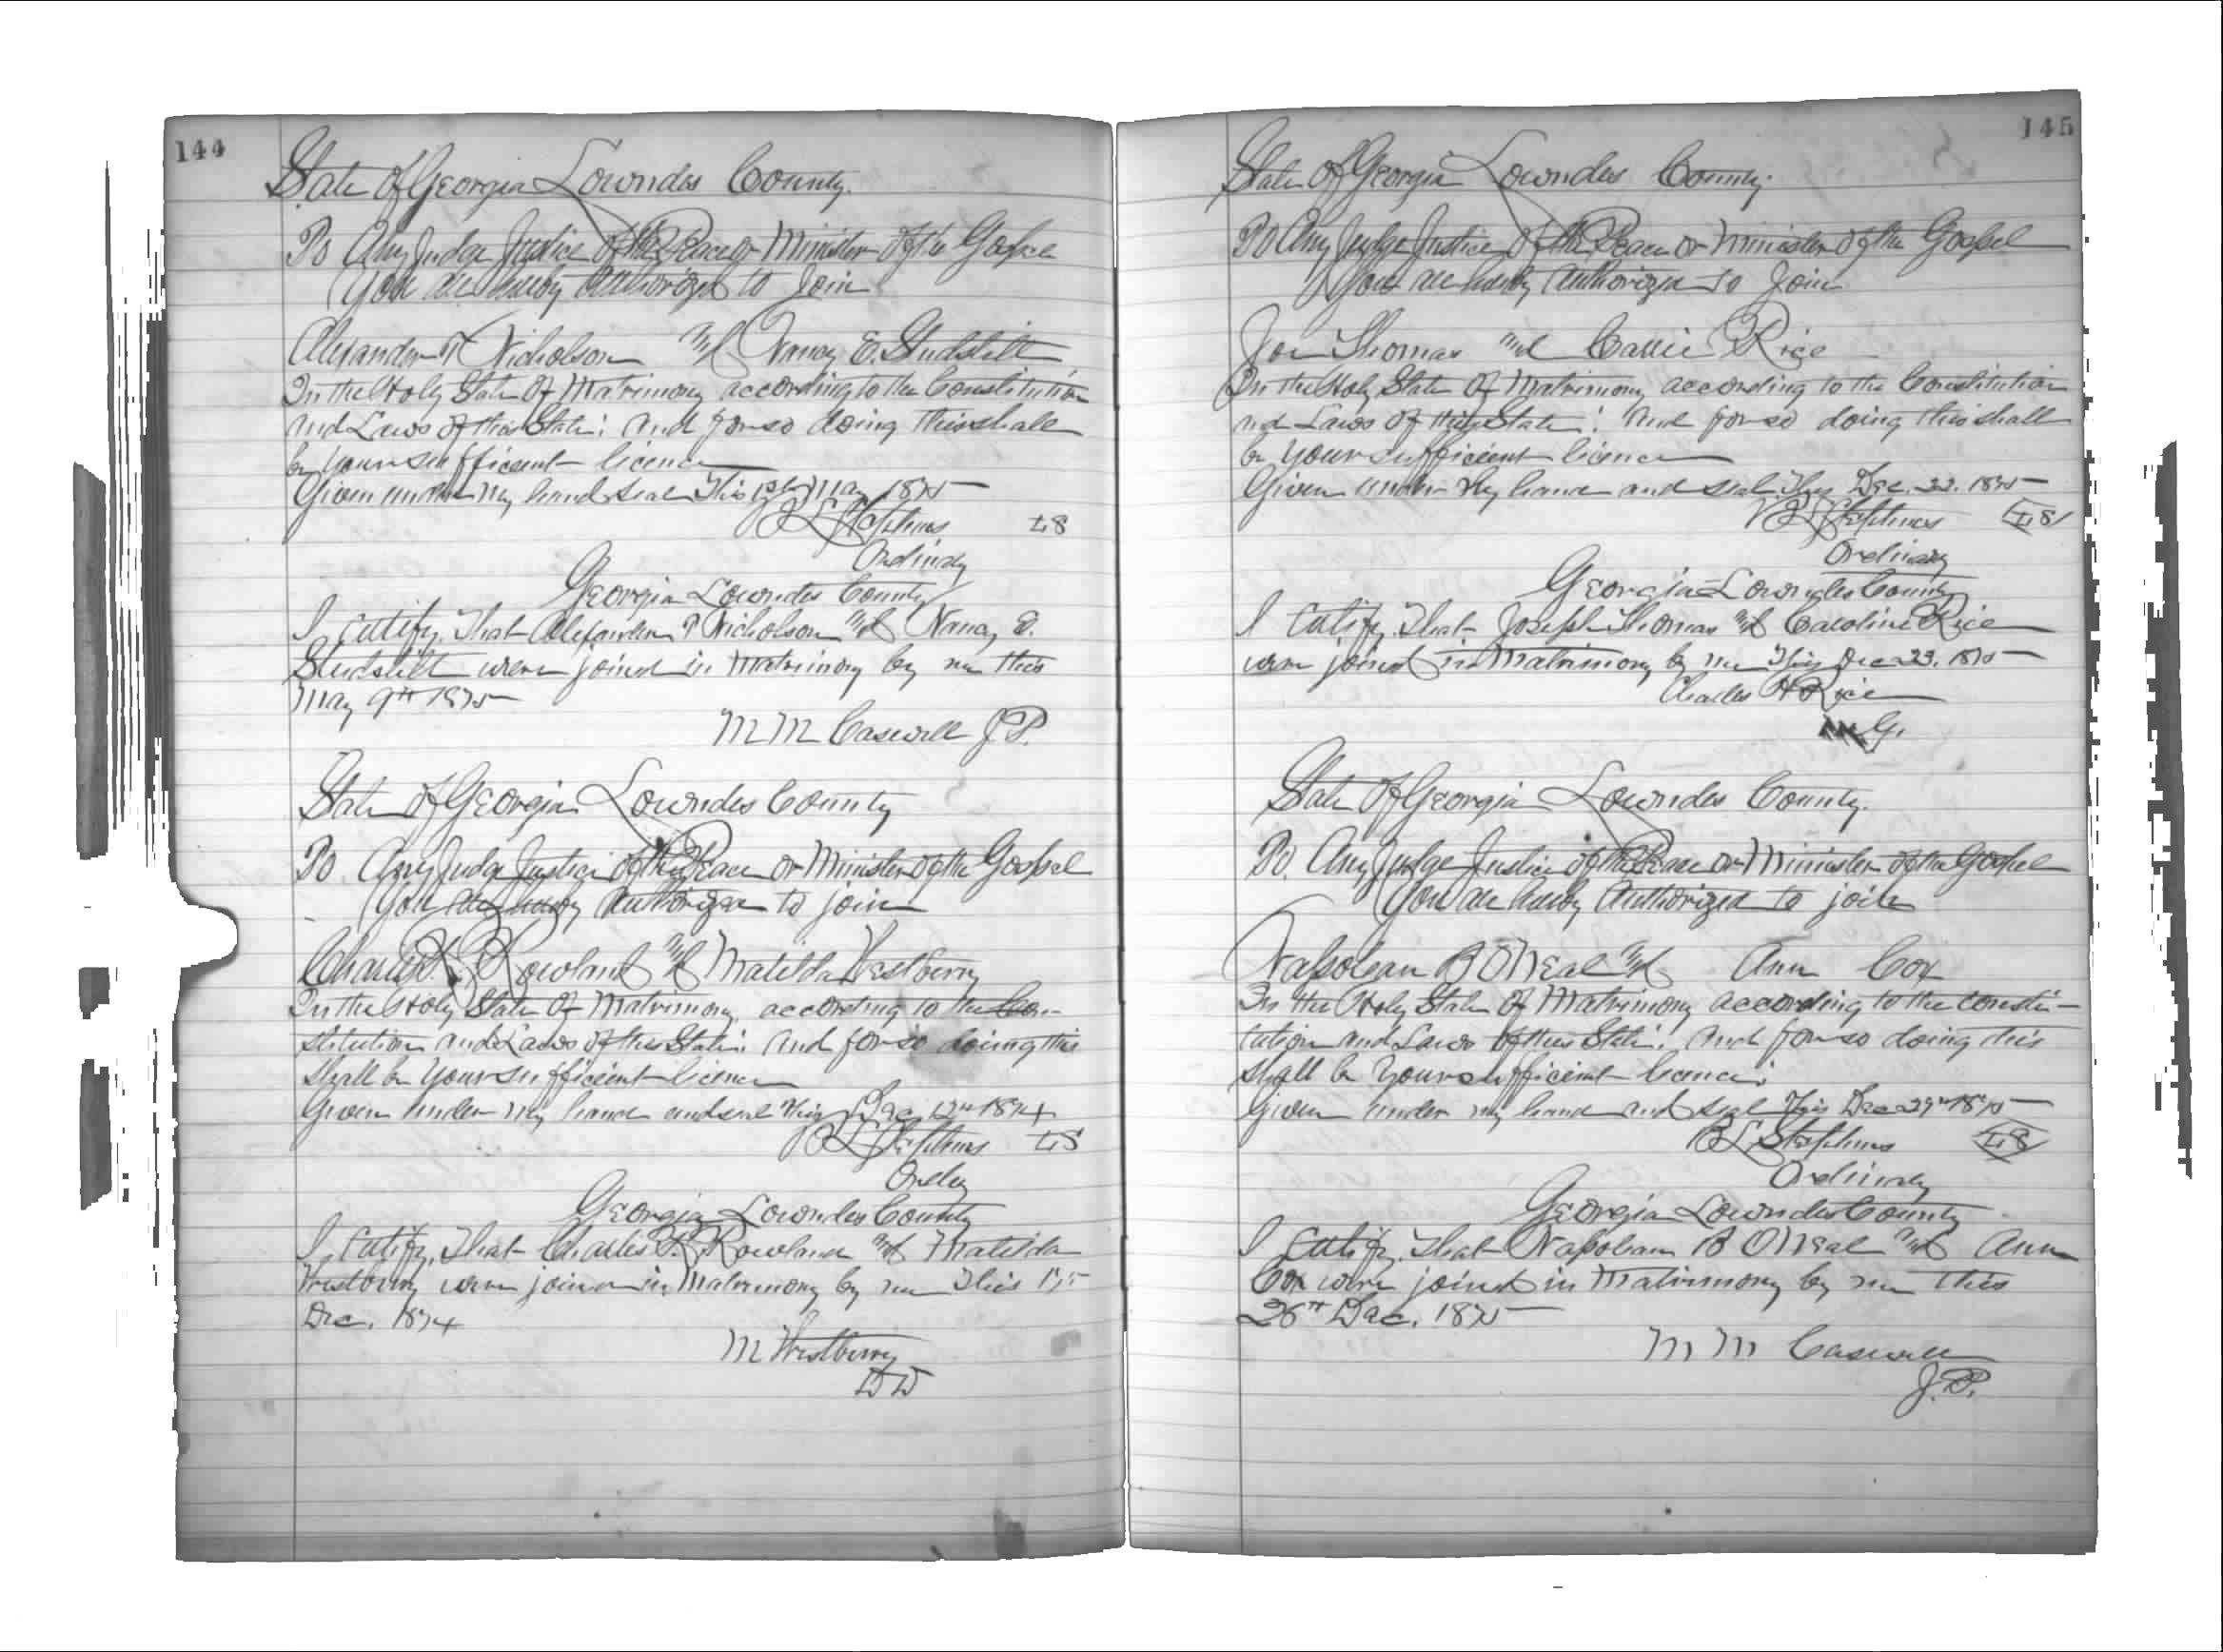 144
State of Georgia Lowndes County.
To Any Judge Justice of the Peace or Minister of the Gospel
You are hereby Authorized to Join
Alexander T Nicholson and Nancy E. Studstill
In the Holy State of Matrimony according to the Constitution
and Laws of this State; And for so doing this shall
be Your sufficient licence
Given under my hand seal This 1st May 1875
LS
Ordinary
Georgia Lowndes County
I Certify, That Alexander T Nicholson and Nancy E.
Studstill were joined in Matrimony by me this
May 9th 1875
M M Caswell J.P.
State of Georgia Lowndes County
To Any Judge Justice of the Peace or Minister of the Gospel
You are hereby Authorized to join
Charles R. Rowland and Matilda Westberry
In the Holy State of Matrimony, according to the Con-
stitution and Laws of this State; And for so doing this
Shall be Your sufficient licence
Given under my hand and seal this Dec 12th 1874
B L Stephens LS
Ordry
Georgia Lowndes County
I, Certify, That Charles R. Rowland and Matilda
Westberry were joined in Matrimony by me This
Dec. 1874
M Westberry
145
State of Georgia Lowndes County.
To Any Judge Justice of the Peace or Minister of the Gospel
You are hereby Authorized to Join
Joe Thomas and Callie Rice
In the Holy State of Matrimony according to the Constitution
and Laws of this State; And for so doing this shall
be Your sufficient licence
Given under My hand and seal This Dec. 22. 1875
B L Stephens LS
Ordinary
Georgia Lowndes County
I Certify, That Joseph Thomas and Caroline Rice
were joined in Matrimony by me This Dec 23. 1875
Charles H Rice
M. G.
State of Georgia Lowndes County.
To. Any Judge Justice of the Peace or Minister of the Gospel
You are hereby Authorized to join
Napolean B ONeal and Ann Cox
In the Holy State of Matrimony according to the consti-
tution and Laws of this State; And for so doing this
shall be Your sufficient licence;
Given under my hand and seal This Dec 1875
B L Stephens LS
Ordinary
Georgia Lowndes County
I Certify, That Napolean B ONeal and Ann
Cox were joined in Matrimony by me this
26th Dec. 1875
M M Caswell
J.P.